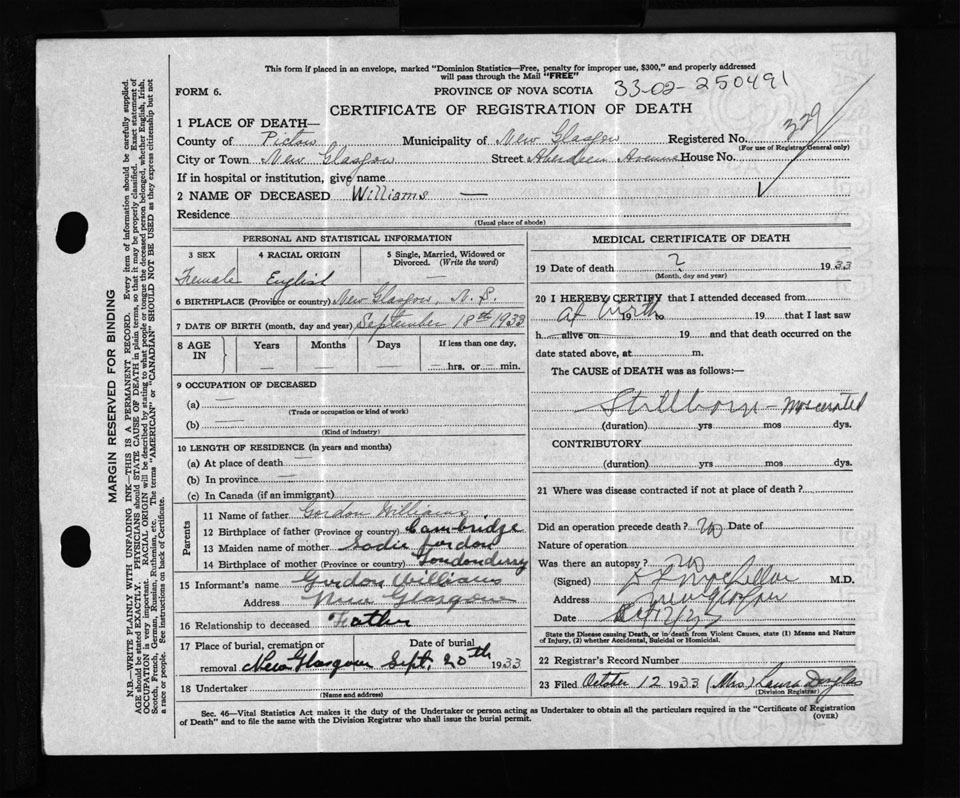 This form if placed in an envelope, marked "Dominion Statistics—Free, penalty for improper use, $300," and properly addressed
will pass through the Mail "FREE"
FORM 6.
PROVINCE OF NOVA SCOTIA
33-02-250491
CERTIFICATE OF REGISTRATION OF DEATH
1 PLACE OF DEATH—
County of Pictou Municipality of New Glasgow Registered No. 329
(For use of Registrar General only)
City or Town New Glasgow Street Aberdeen Avenue House No.
If in hospital or institution, give name
2 NAME OF DECEASED Williams —
Residence
(Usual place of abode)
PERSONAL AND STATISTICAL INFORMATION
3 SEX
Female
4 RACIAL ORIGIN
English
5 Single, Married, Widowed or
Divorced. (Write the word)
6 BIRTHPLACE (Province or country) New Glasgow, N.S.
7 DATE OF BIRTH (month, day and year) September 18th 1933
8 AGE
IN
Years
—
Months
—
Days
—
If less than one day,
hrs. or min.
9 OCCUPATION OF DECEASED
(a) —
(Trade or occupation or kind of work)
(b) —
(Kind of industry)
10 LENGTH OF RESIDENCE (in years and months)
(a) At place of death —
(b) In province —
(c) In Canada (if an immigrant)
Parents
11 Name of father Gordon Williams
12 Birthplace of father (Province or country) Cambridge
13 Maiden name of mother Sadie Jordon
14 Birthplace of mother (Province or country) Londonderry
15 Informant's name Gordon Williams
Address New Glasgow
16 Relationship to deceased Father
17 Place of burial, cremation or Date of burial
removal New Glasgow Sept. 20th 1933
18 Undertaker
(Name and address)
MEDICAL CERTIFICATE OF DEATH
19 Date of death ? 1933
(Month, day and year)
20 I HEREBY CERTIFY that I attended deceased from
At birth 19 to 19 that I last saw
h alive on 19 and that death occurred on the
date stated above, at m.
The CAUSE of DEATH was as follows:—
Stillborn – Mascerated
(duration) yrs mos dys.
CONTRIBUTORY
(duration) yrs mos dys.
21 Where was disease contracted if not at place of death?
Did an operation precede death? no Date of
Nature of operation
Was there an autopsy? no
(Signed) M.D.
Address New Glasgow
Date Oct
State the Disease causing Death, or in death from Violent Causes, state (1) Means and Nature
of Injury, (2) whether Accidental, Suicidal or Homicidal.
22 Registrar's Record Number
23 Filed October 12 1933 (Mrs) Laura Douglas
(Division Registrar)
Sec. 46—Vital Statistics Act makes it the duty of the Undertaker or person acting as Undertaker to obtain all the particulars required in the "Certificate of Registration
of Death" and to file the same with the Division Registrar who shall issue the burial permit.
(OVER)
MARGIN RESERVED FOR BINDING
N.B.—WRITE PLAINLY WITH UNFADING INK—THIS IS A PERMANENT RECORD. Every item of information should be carefully supplied.
AGE should be stated EXACTLY. PHYSICIANS should STATE CAUSE OF DEATH in plain terms, so that it may be properly classified. Exact statement of
OCCUPATION is very important. RACIAL ORIGIN will be described by stating to what people or tongue the deceased person belonged, whether English, Irish,
Scotch, French, German, Russian, Ruthenian, etc. The terms "AMERICAN" or "CANADIAN" SHOULD NOT BE USED as they express citizenship but not
a race or people. See instructions on back of Certificate.